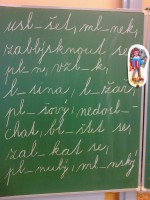 usl_šet, ml_nek,
zabl_sknout se,
pl_n, vzl_k,
b_lina, l_žař,
pl_šový, nedosl_-
chat, bl_štět se,
zal_kat se,
pl_nulý, ml_nský